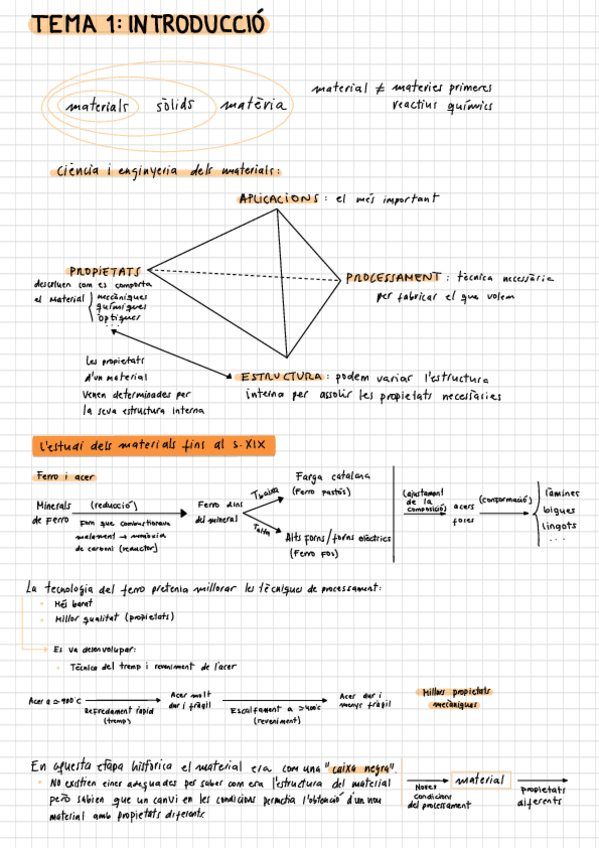 TEMA 1: INTRODUCCIÓ
materials sòlids matèria
material ≠ materies primeres
reactius químics
Ciència i enginyeria dels materials:
APLICACIONS: el més important
PROPIETATS
descriuen com es comporta
el material
mecàniques
químiques
òptiques
...
PROCESSAMENT: tècnica necessària
per fabricar el que volem
Les propietats
d'un material
venen determinades per
la seva estructura interna
ESTRUCTURA: podem variar l'estructura
interna per assolir les propietats necessàries
L'estudi dels materials fins al s. XIX
Ferro i acer
Minerals
de Ferro
(reducció)
Fem que combustionava
malament →
de carboni (reductor)
Ferro dins
del mineral
T baixa
Farga catalana
(Ferro pastós)
T alta
Alts forns/forns elèctrics
(Ferro fos)
(ajustament
de la
composició)
acers
foses
(conformació)
làmines
bigues
lingots
...
La tecnologia del ferro pretenia millorar les tècniques de processament:
• Més barat
• Millor qualitat (propietats)
• Es va desenvolupar:
• Tècnica del tremp i reveniment de l'acer
Acer a ≃ 900°C
Refredament ràpid
(tremp)
Acer molt
dur i fràgil
Escalfament a >400°C
(reveniment)
Acer dur i
menys fràgil
Millors propietats
mecàniques
En aquesta etapa històrica el material era com una "caixa negra".
• No existien eines adequades per saber com era l'estructura del material
però sabien que un canvi en les condicions permetia l'obtenció d'un nou
material amb propietats diferents
Noves
condicions
del processament
material
propietats
diferents